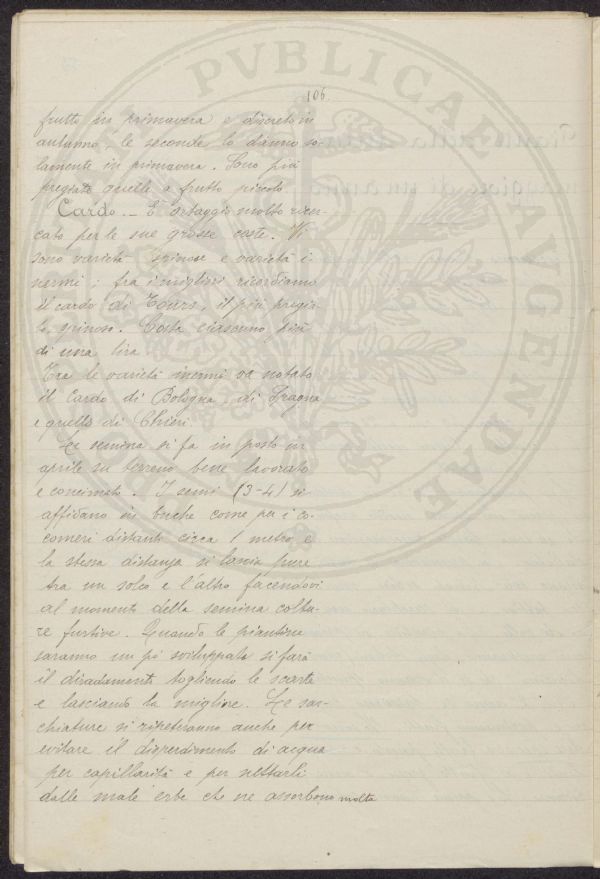 106
frutto in primavera e discreto in
autunno, le seconde lo danno so-
lamente in primavera. Sono più
pregiate quelle a frutto piccolo.
Cardo. - È ortaggio molto ricer-
cato per le sue grosse coste. Vi
sono varietà spinose e varietà i-
nermi; fra i migliori ricordiamo
il cardo di Tours, il più pregia-
to, spinoso. Costa ciascuno più
di una lira.
Tra le varietà inermi va notato
il Cardo di Bologna, di
e quello di Chieri.
La semina si fa in posto in
aprile su terreno bene lavorato
e concimato. I semi (3-4) si
affidano in buche come per i co-
comeri distanti circa 1 metro e
la stessa distanza si lascia pure
tra un solco e l'altro facendovi
al momento della semina coltu-
re furtive. Quando le piantine
saranno un pò sviluppate si farà
il diradamento togliendo le scarte
e lasciando la migliore. Le sar-
chiature si ripeteranno anche per
evitare il disperdimento di acqua
per capillarità e per nettarli
dalle male erbe che ne assorbono molta
PVBLICAE AVGENDAE